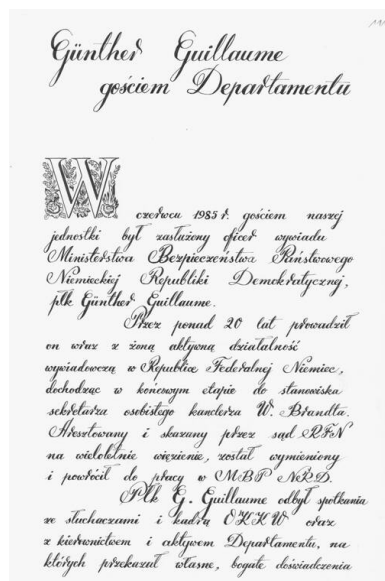 Günther Guillaume
gościem Departamentu
W czerwcu 1985 r. gościem naszej
jednostki był zasłużony oficer wywiadu
Ministerstwa Bezpieczeństwa Państwowego
Niemieckiej Republiki Demokratycznej,
płk Günther Guillaume.
Przez ponad 20 lat prowadził
on wraz z żoną aktywną działalność
wywiadowczą w Republice Federalnej Niemiec,
dochodząc w końcowym etapie do stanowiska
sekretarza osobistego kanclerza W. Brandta.
Aresztowany i skazany przez sąd RFN
na wieloletnie więzienie, został wymieniony
i powrócił do pracy w MBP NRD.
Płk G. Guillaume odbył spotkania
ze słuchaczami i kadrą OKKW oraz
z kierownictwem i aktywem Departamentu, na
których przekazał własne, bogate doświadczenia